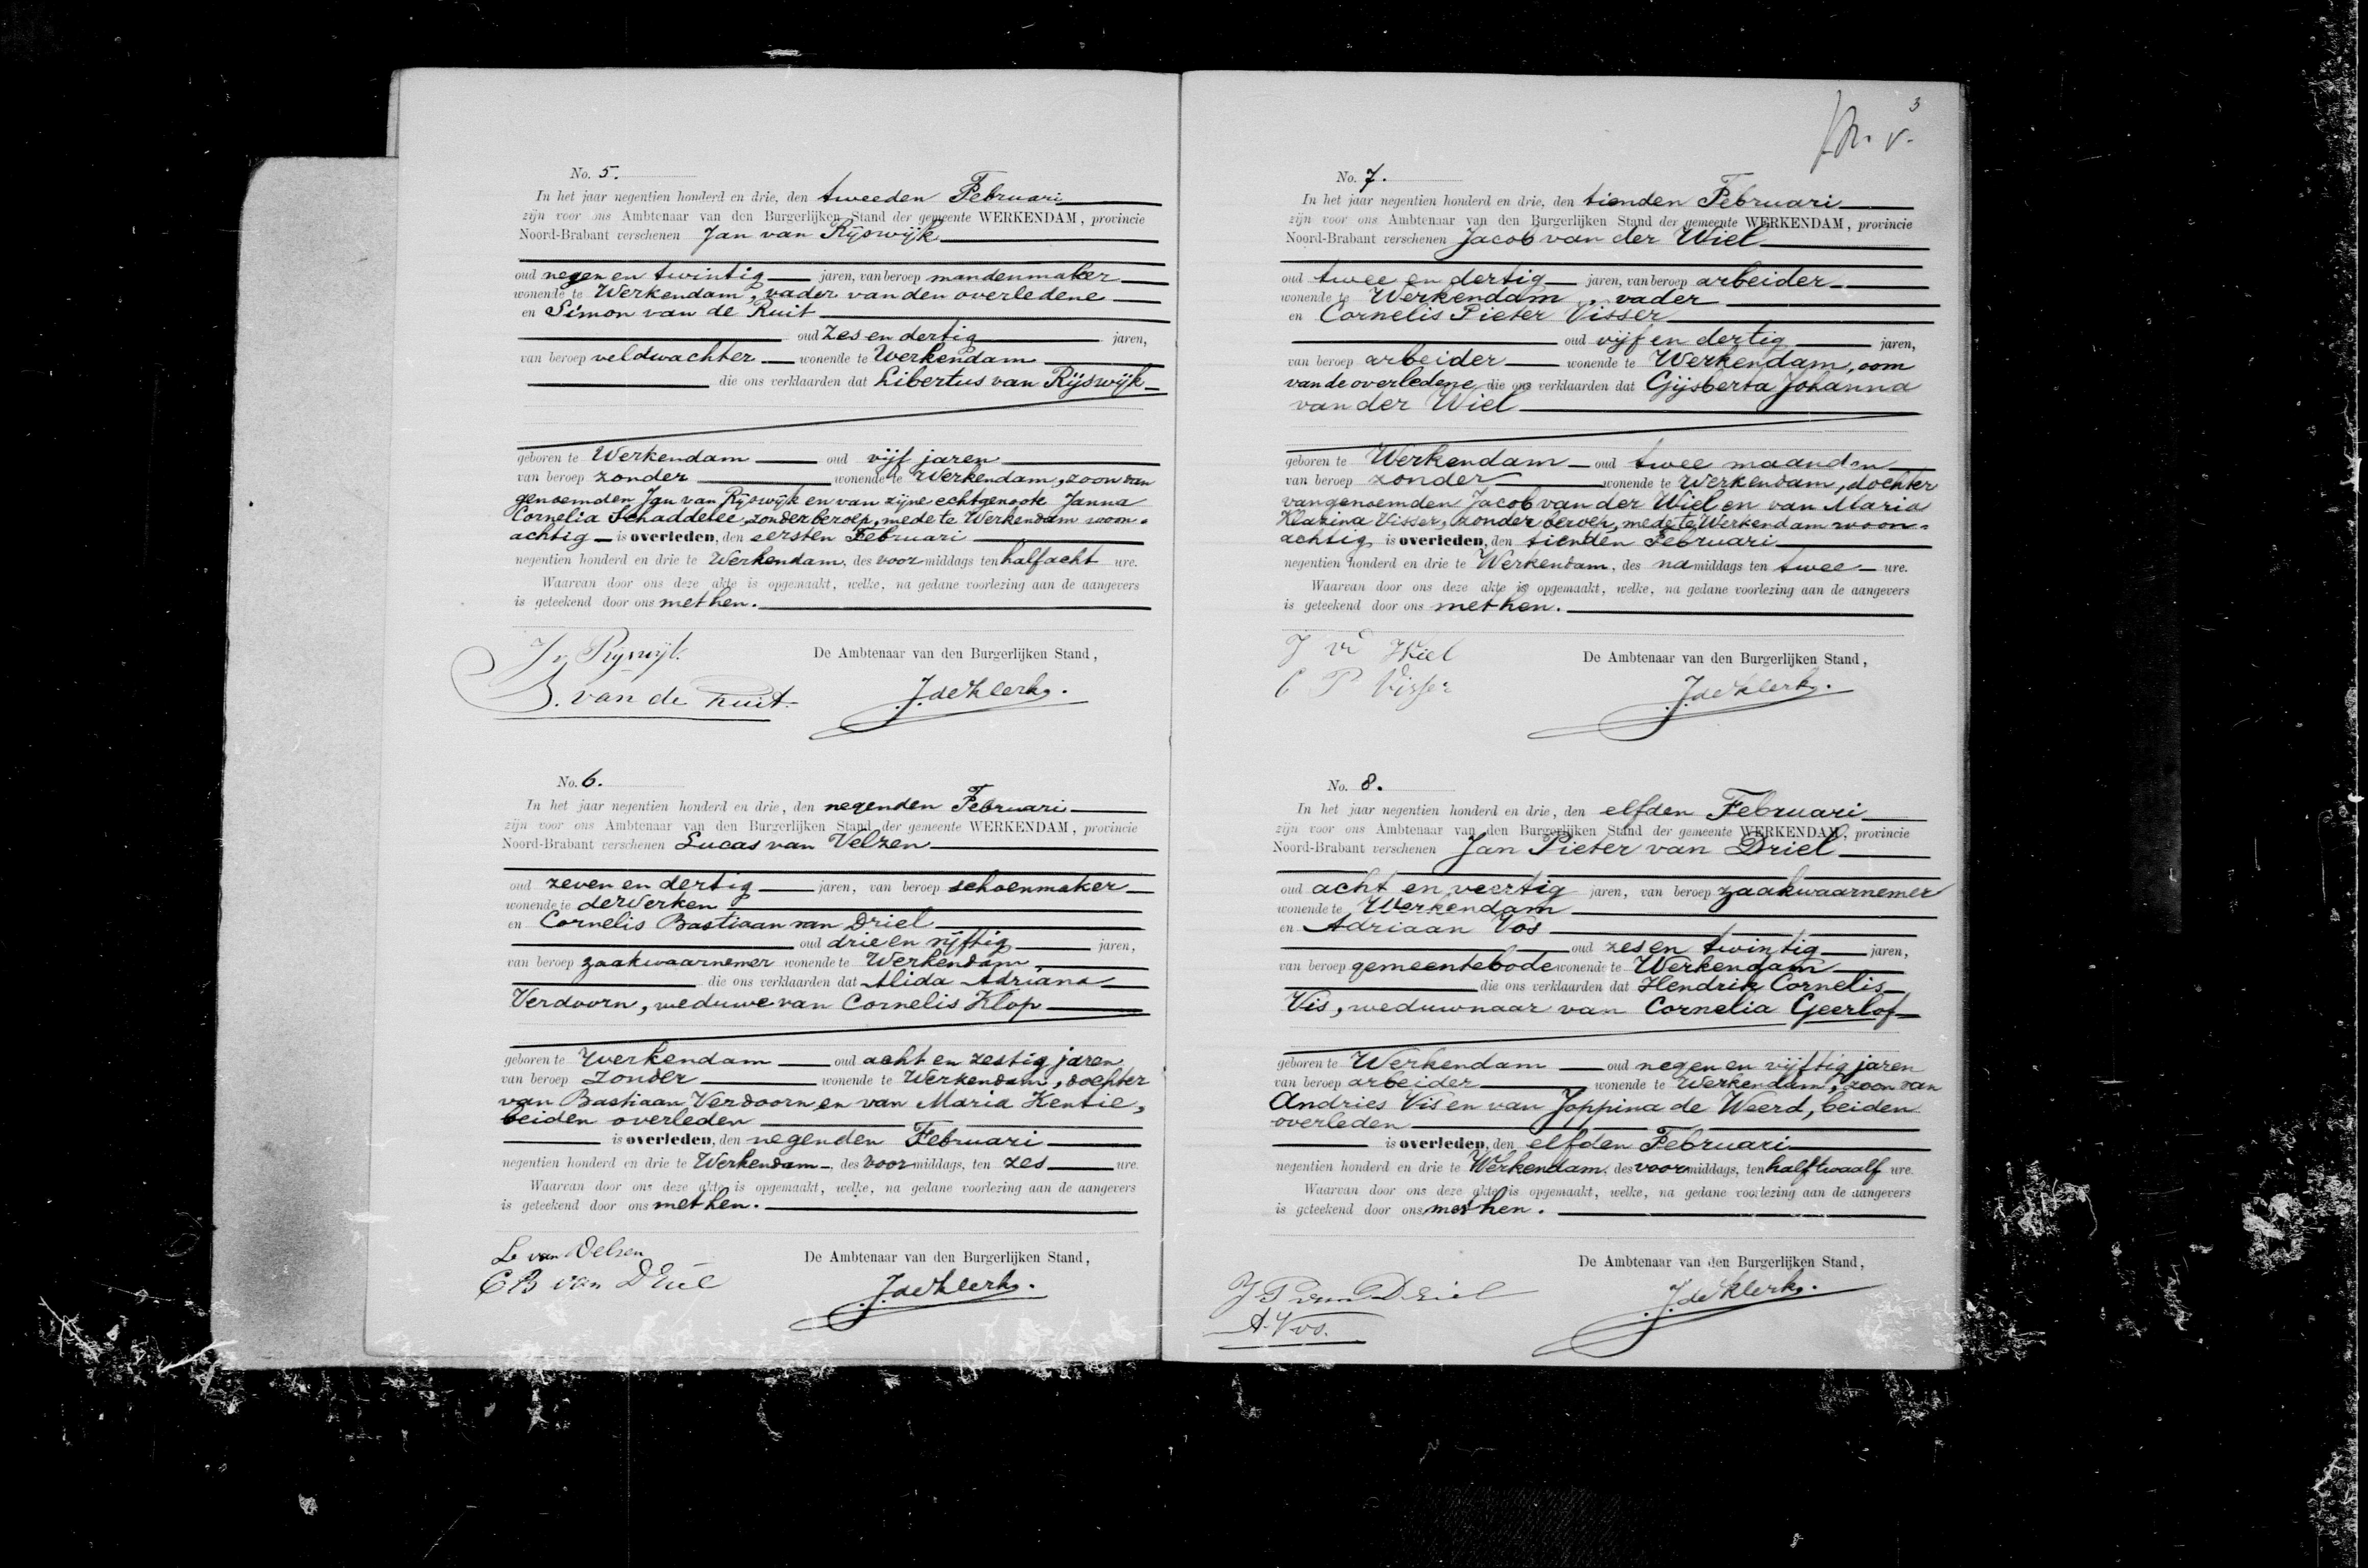 No. 5.
In het jaar negentien honderd en drie, den tweeden Februari
zijn voor ons Ambtenaar van den Burgerlijken Stand der gemeente WERKENDAM, provincie
Noord-Brabant verschenen Jan van Rijswijk
oud negen en twintig jaren, van beroep mandenmaker
wonende te Werkendam, vader van den overledene
en Simon van de Ruit
oud zes en dertig jaren,
van beroep veldwachter wonende te Werkendam
die ons verklaarden dat Libertus van Rijswijk
geboren te Werkendam oud vijf jaren
van beroep zonder wonende te Werkendam, zoon van
genoemden Jan van Rijswijk en van zijne echtgenoote Janna
Cornelia Schaddelee, zonder beroep, mede te Werkendam woon-
achtig is overleden, den eersten Februari
negentien honderd en drie te Werkendam, des voormiddags ten half acht ure.
Waarvan door ons deze akte is opgemaakt, welke, na gedane voorlezing aan de aangevers
is geteekend door ons met hen.
J v Rijswijk.
De Ambtenaar van den Burgerlijken Stand,
S. van de Ruit.
J. de Klerk.
No. 6.
In het jaar negentien honderd en drie, den negenden Februari
zijn voor ons Ambtenaar van den Burgerlijken Stand der gemeente WERKENDAM, provincie
Noord-Brabant verschenen Lucas van Velzen
oud zeven en dertig jaren, van beroep schoenmaker
wonende te de Werken
en Cornelis Bastiaan van Driel
oud drie en vijftig jaren,
van beroep zaakwaarnemer wonende te Werkendam
die ons verklaarden dat Alida Adriana
Verdoorn, weduwe van Cornelis Klop
geboren te Werkendam oud acht en zestig jaren
van beroep zonder wonende te Werkendam, dochter
van Bastiaan Verdoorn en van Maria Kentie,
beiden overleden
is overleden, den negenden Februari
negentien honderd en drie te Werkendam, des voormiddags, ten zes ure.
Waarvan door ons deze akte is opgemaakt, welke, na gedane voorlezing aan de aangevers
is geteekend door ons met hen.
L. van Velsen
De Ambtenaar van den Burgerlijken Stand,
C B van Driel
J. de Klerk.
3
No. 7.
In het jaar negentien honderd en drie, den tienden Februari
zijn voor ons Ambtenaar van den Burgerlijken Stand der gemeente WERKENDAM, provincie
Noord-Brabant verschenen Jacob van der Wiel
oud twee en dertig jaren, van beroep arbeider
wonende te Werkendam, vader
en Cornelis Pieter Visser
oud vijf en dertig jaren,
van beroep arbeider wonende te Werkendam, oom
van de overledene, die ons verklaarden dat Gijsberta Johanna
van der Wiel
geboren te Werkendam oud twee maanden
van beroep zonder wonende te Werkendam, dochter
van genoemden Jacob van der Wiel en van Maria
Klazina Visser, zonder beroep, mede te Werkendam woon-
achtig is overleden, den tienden Februari
negentien honderd en drie te Werkendam, des namiddags ten twee ure.
Waarvan door ons deze akte is opgemaakt, welke, na gedane voorlezing aan de aangevers
is geteekend door ons met hen.
J vd Wiel
De Ambtenaar van den Burgerlijken Stand,
C P Visser
J. de Klerk.
No. 8.
In het jaar negentien honderd en drie, den elfden Februari
zijn voor ons Ambtenaar van den Burgerlijken Stand der gemeente WERKENDAM, provincie
Noord-Brabant verschenen Jan Pieter van Driel
oud acht en veertig jaren, van beroep zaakwaarnemer
wonende te Werkendam
en Adriaan Vos
oud zes en twintig jaren,
van beroep gemeentebode wonende te Werkendam
die ons verklaarden dat Hendrik Cornelis
Vis, weduwnaar van Cornelia Geerlof
geboren te Werkendam oud negen en vijftig jaren
van beroep arbeider wonende te Werkendam, zoon van
Andries Vis en van Joppina de Weerd, beiden
overleden
is overleden, den elfden Februari
negentien honderd en drie te Werkendam, des voormiddags, ten half twaalf ure.
Waarvan door ons deze akte is opgemaakt, welke, na gedane voorlezing aan de aangevers
is geteekend door ons met hen.
De Ambtenaar van den Burgerlijken Stand,
J. P van Driel
J. de Klerk.
A. Vos.